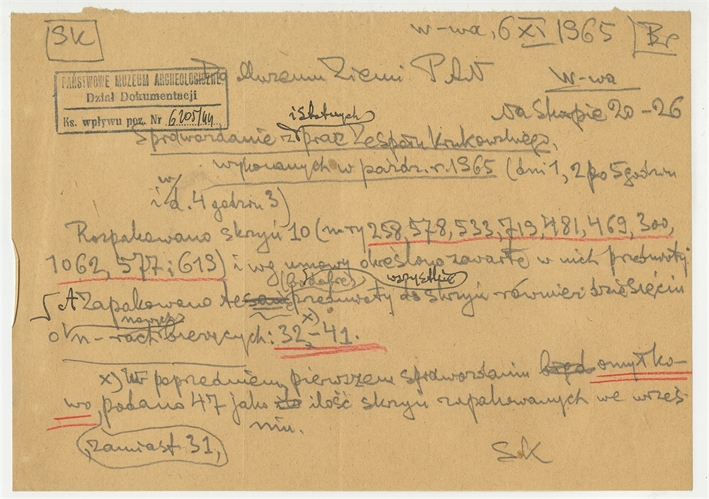 SK
W-wa, 6 XI 1965 Br
Do Muzeum Ziemi PAN
W-wa
Na Skarpie 20-26
PAŃSTWOWE MUZEUM ARCHEOLOGICZNE
Dział Dokumentacji
Ks. wpływu poz. Nr 6205/44
Sprawozdanie z prac Zespołu Krukowskiego,
wykonanych w paźdz. r. 1965 (dni 1, 2 po 5 godzin
i d. 4 godzin 3)
Rozpakowano skrzyń 10 (n-ry 258, 578, 533, 719, 481, 469, 300,
1062, 577 i 613) i wg umowy określono zawarte w nich przedmioty.
Zapakowano te przedmioty do skrzyń również dziesięciu
nowych
o n-rach bieżących: 32 - 41. x)
x) W poprzednim, pierwszem sprawozdaniu omyłko-
wo podano 47 jako ilość skrzyń zapakowanych we wrześ-
niu.
zamiast 31,
SK